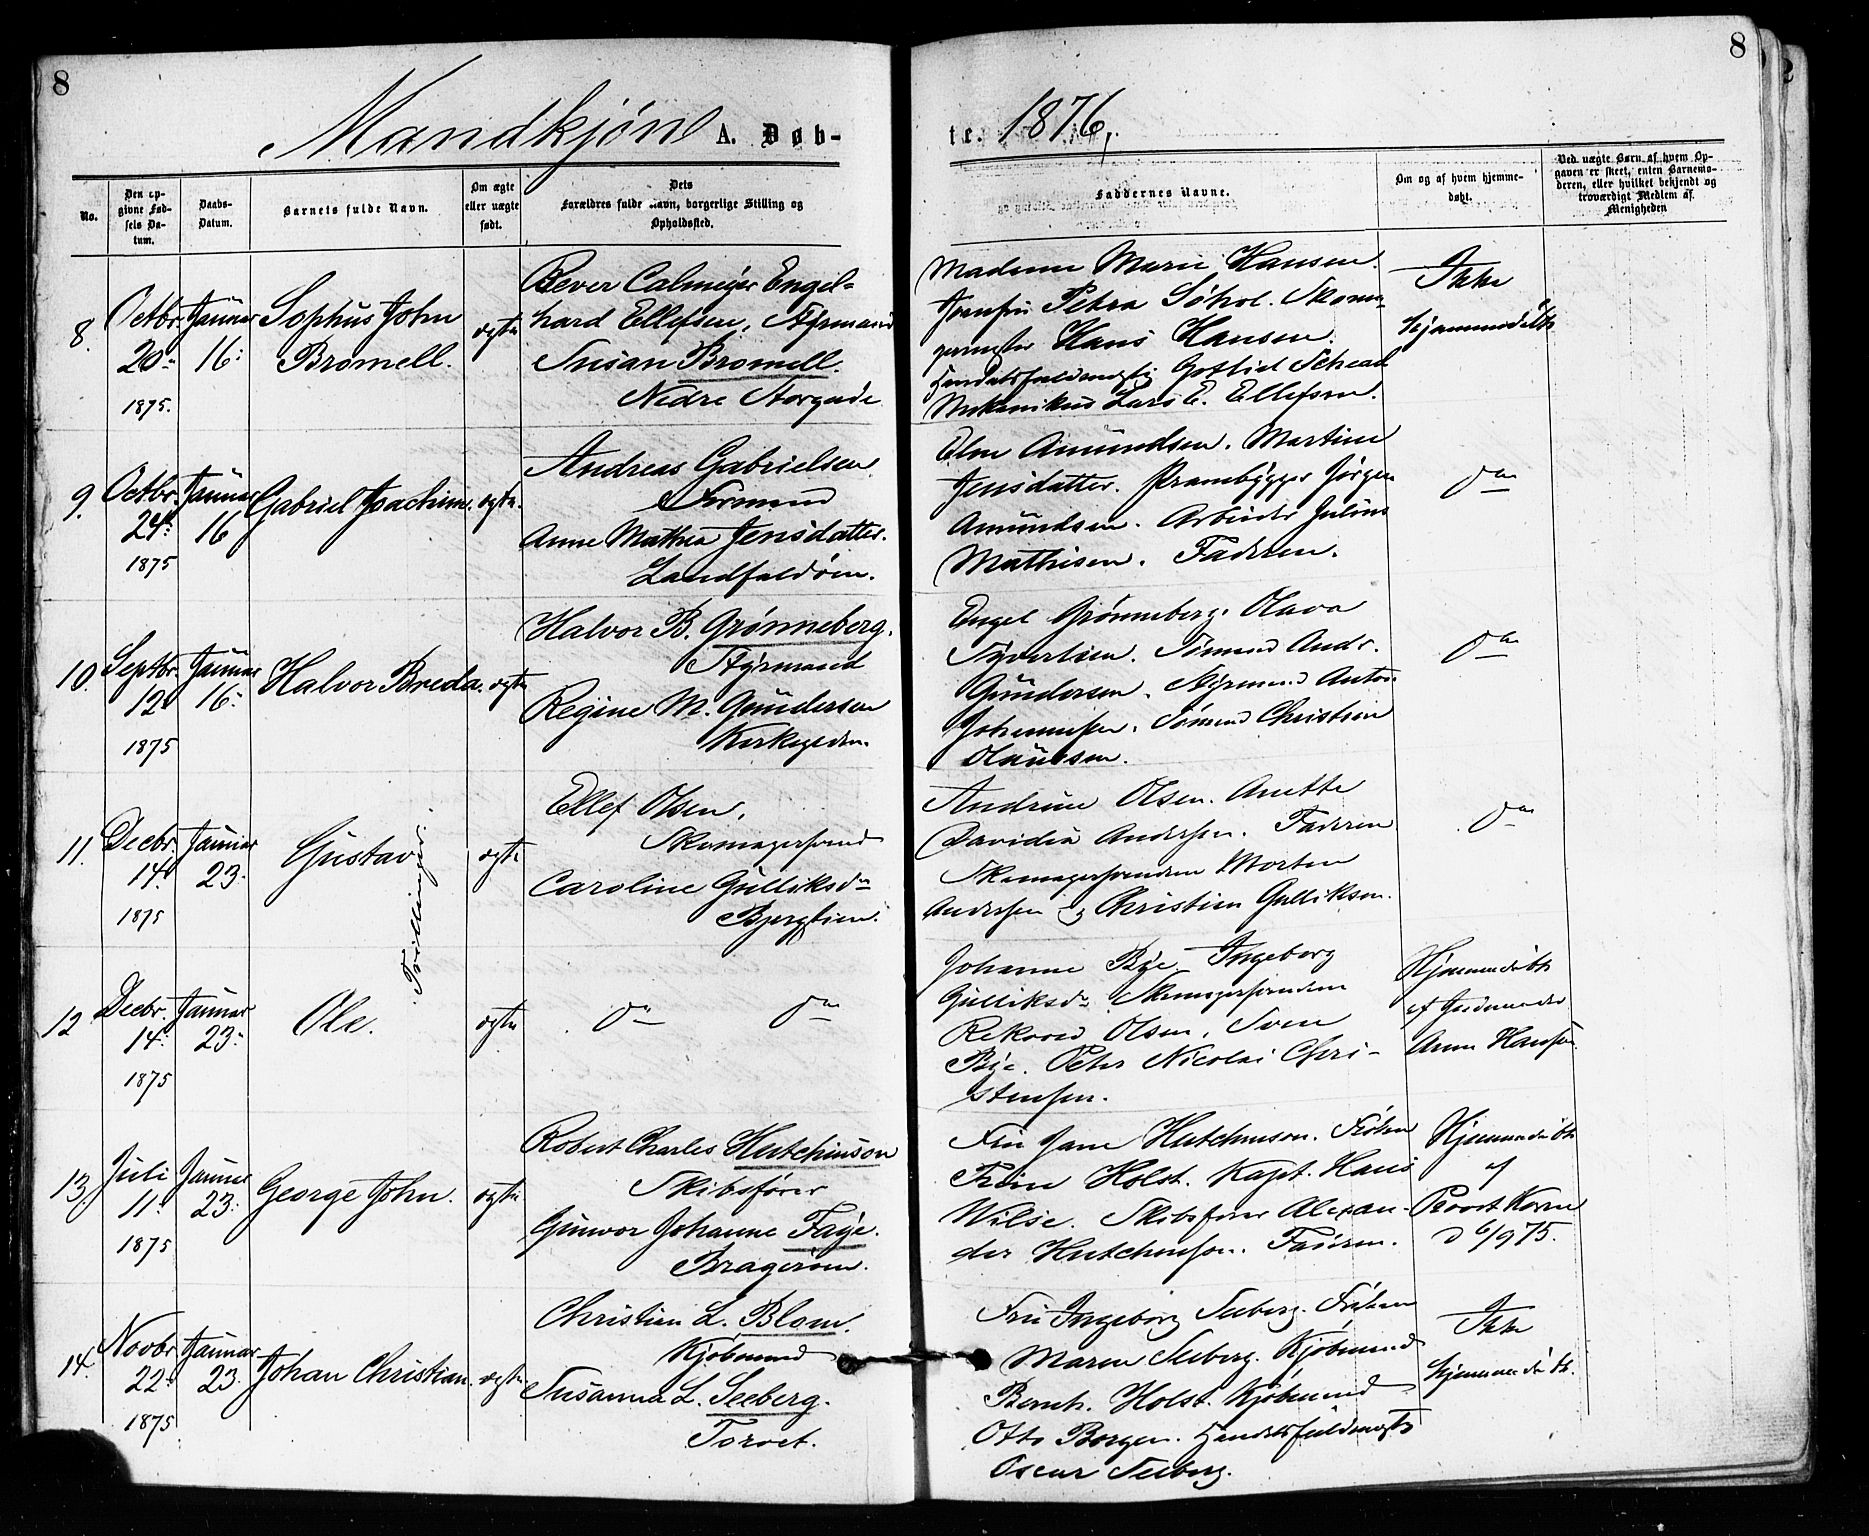 8
8
Mandkjøn A. Døb-
te. 1876,
No.
Den op-
givne Fød-
sels Da-
tum.
Daabs-
Datum.
Barnets fulde Navn.
Om ægte
eller uægte
født.
Dets
Forældres fulde Navn, borgerlige Stilling og
Opholdssted.
Faddernes Navne.
Om og af hvem hjemme-
døbt.
Ved uægte Børn af hvem Op-
gaven er skeet, enten Barnemo-
deren, eller hvilket bekjendt og
troværdigt Medlem af
Menigheden
8.
Octbr.
20de
1875.
Januar
16:
Sophus John
Bromell.
ægte
Bever Calmeyer Engel-
hard Ellefsen, Styrmand
Susan Bromell.
Nedre Storgade
Madame Marie Hansen.
Jomfru Petra Søhol. Skoma-
germester Hans Hansen.
Handelsfuldmægtig Gotlid
Mekanikus Lars E. Ellefsen.
Ikke
hjemmedøbt
9.
Octbr.
24de
1875
Januar
16
Gabriel Joachim.
ægte.
Andreas Gabrielsen
Formand
Anne Mathea Jensdatter.
Landfaldøen.
Amundsen. Martine
Jensdatter. Prambygger Jørgen
Amundsen. Arbeider Julius
Mathisen. Faderen.
do
10.
Septbr.
12
1875
Januar
16:
Halvor Breda.
ægte
Halvor B. Grønneberg.
Styrmand
Regine M. Gundersen
Kirkegaden.
Engel Grønneberg. Olava
Syvertsen. Sømand Andr.
Gundersen. Styrmand Anton
Johannessen. Sømand Christian
Olaussen.
do
11.
Decbr.
14.
1875
Januar
23.
Gustav
Tvillinger.
ægte
Ellef Olsen,
Skomagersvend
Caroline Gulliksdr
Bjergstien.
Andrine Olsen. Anette
Davidia Andersen. Faderen
Skomagersvendene Morten
Andersen og Christian Gulliksen.
do
12
Decbr.
14.
1875
Januar
23:
Ole.
ægte
do do
Johanne Bye Ingeborg
Gulliksdr Skomagersvendene
Rekoved Olsen, Sven
Bye. Peter Nicolai Chri-
stensen.
Hjemmedøbt
af Gjordemoder
Anne Hansen.
13.
Juli
11.
1875
Januar
23:
George John.
ægte
Robert Charles Hutchinson
Skibsfører
Gunvor Johanne Faye.
Bragerøen.
Fru Jane Hutchinson. Frøken
Trine Holst. Kapt. Hans
Wilse. Skibsfører Alexan-
der Hutchinson. Faderen.
Hjemmedøbt
af
Provst Korn
d 6/9 75.
14.
Novbr
22
1875
Januar
23.
Johan Christian.
ægte
Christian L. Blom.
Kjøbmand
Susanna L. Seeberg.
Torvet.
Fru Ingeborg Seeberg. Frøken
Maren Seeberg. Kjøbmand
Bernh. Holst. Kjøbmand
Otto Borgen. Handelsfuldmægt.
Oscar Seeberg.
Ikke
hjemmedøbt.